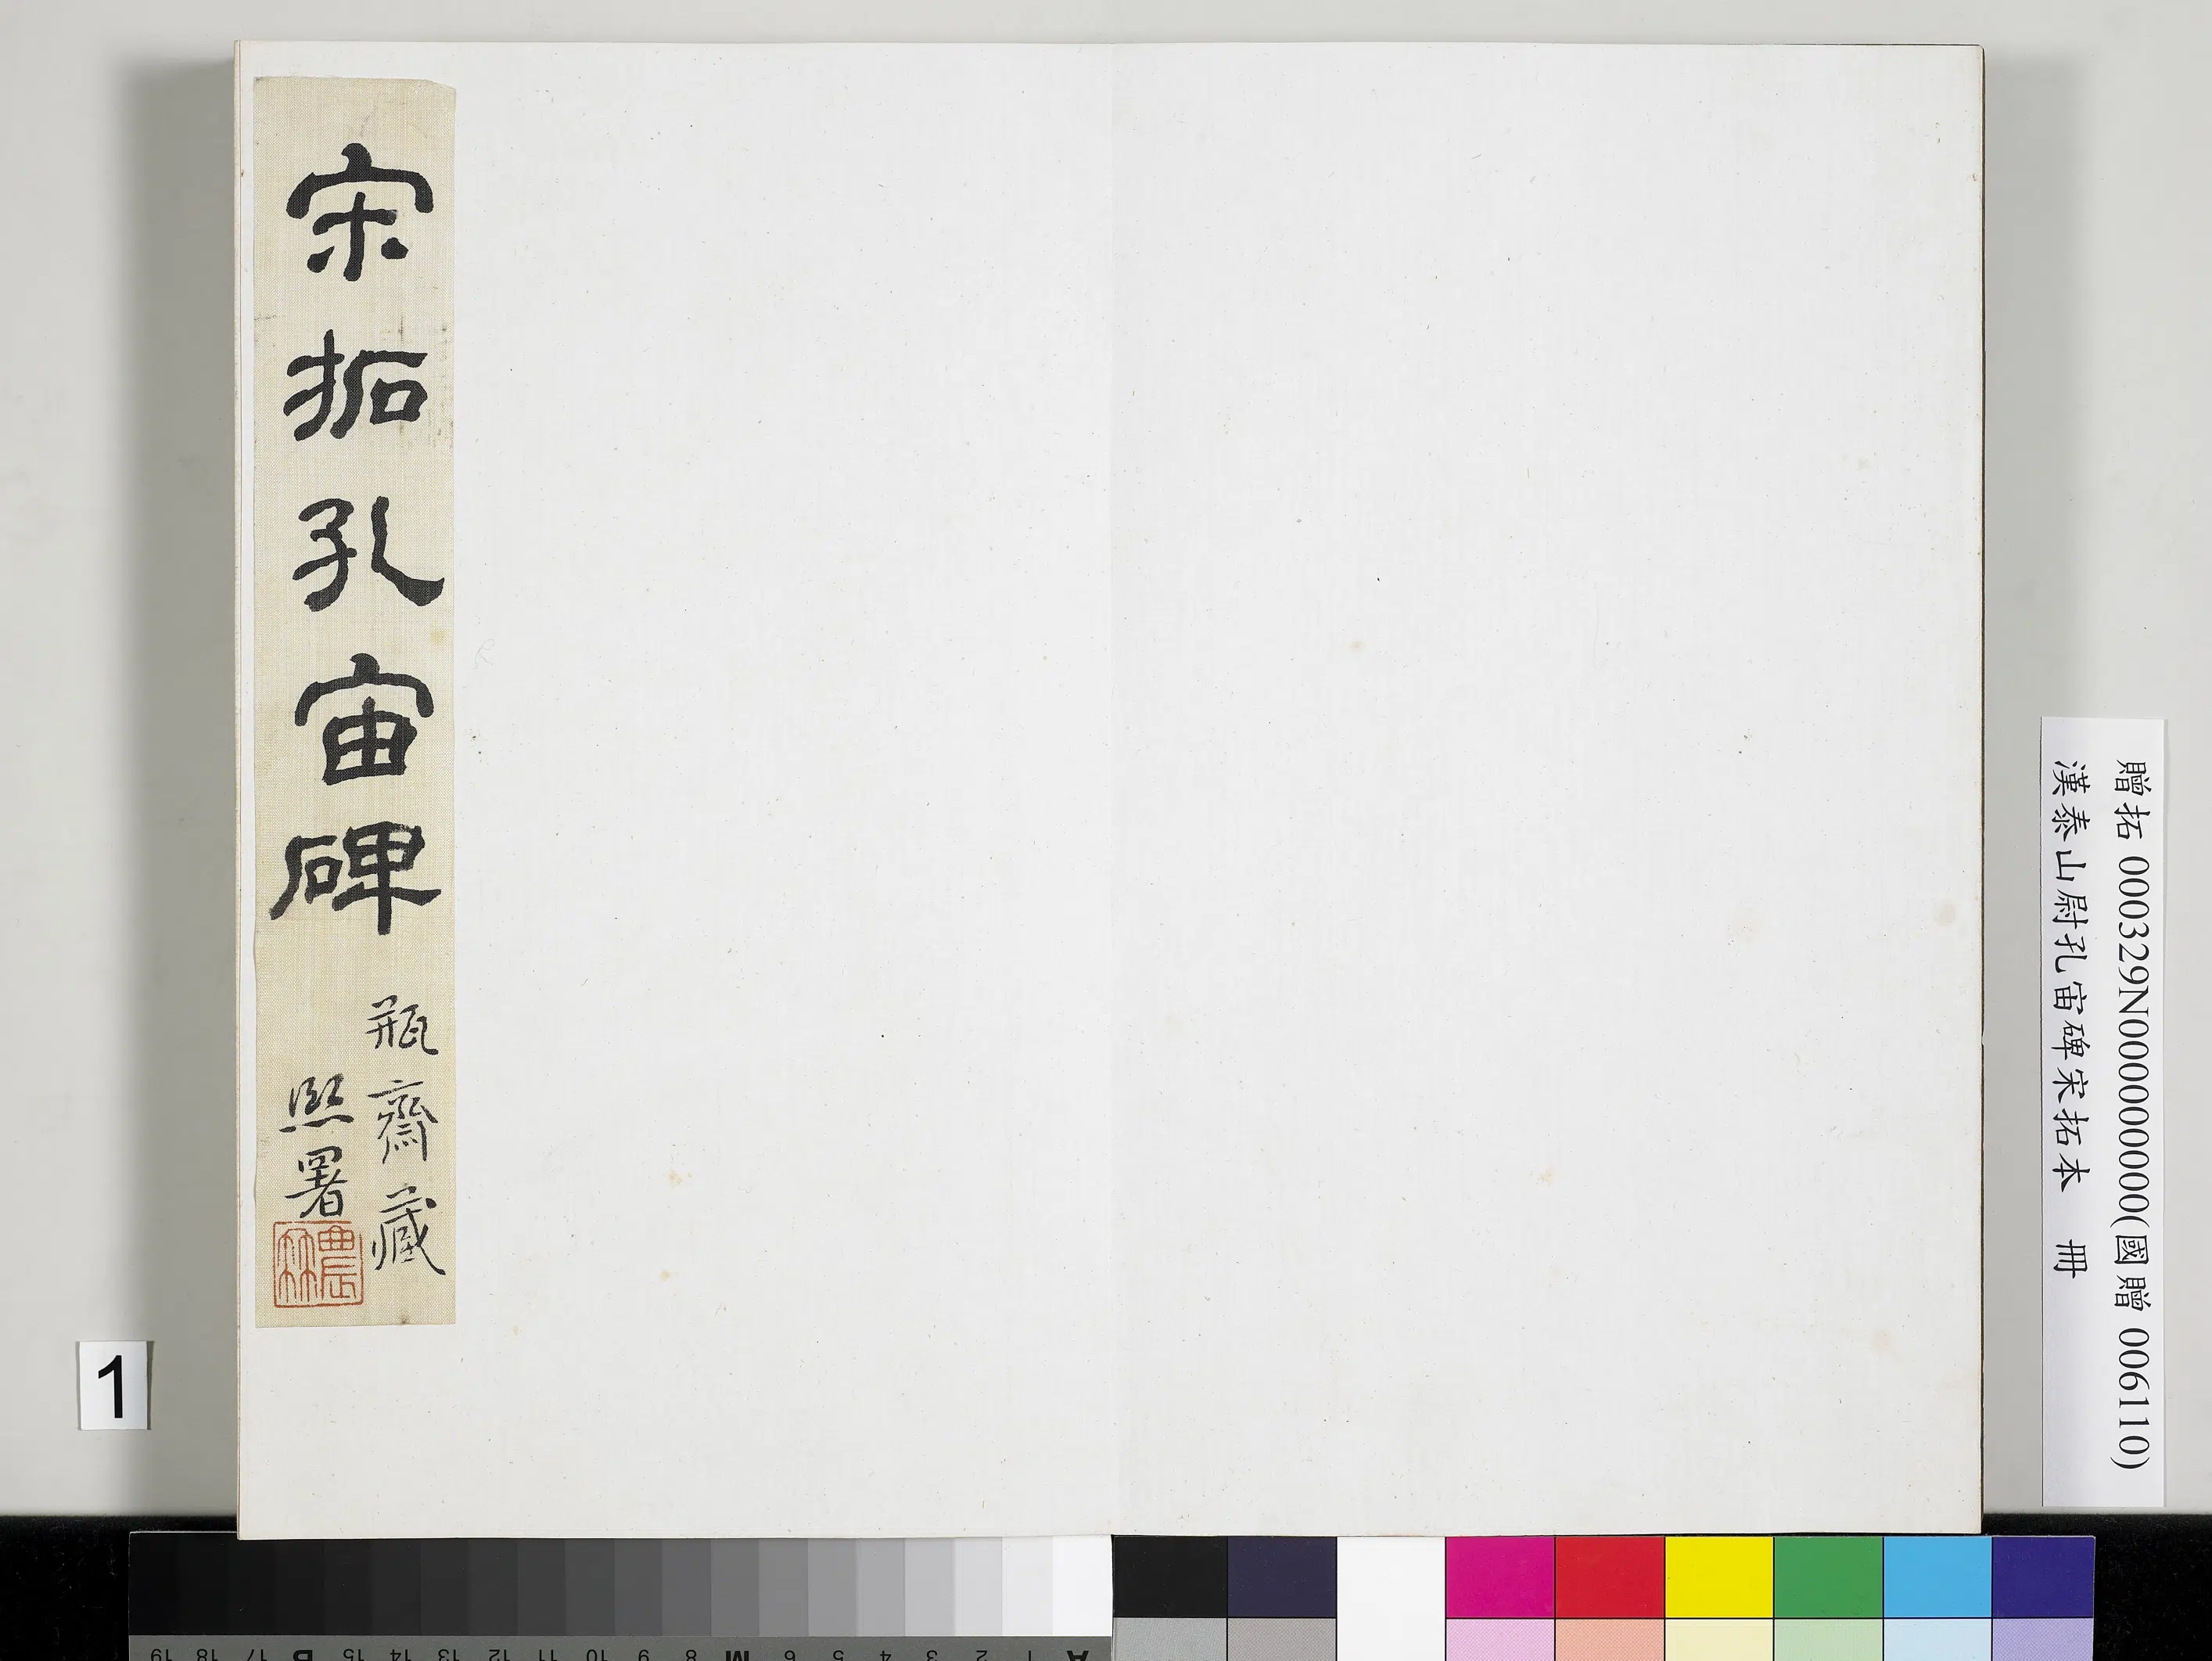 宋拓孔宙碑
瓶齋藏
熙署
農髯
1
贈拓 000329N000000000(國贈 006110)
漢泰山尉孔宙碑宋拓本 冊
19 18 17 B 15 14 13 12 11 10 9 8 M 6 5 4 3 2 1 A